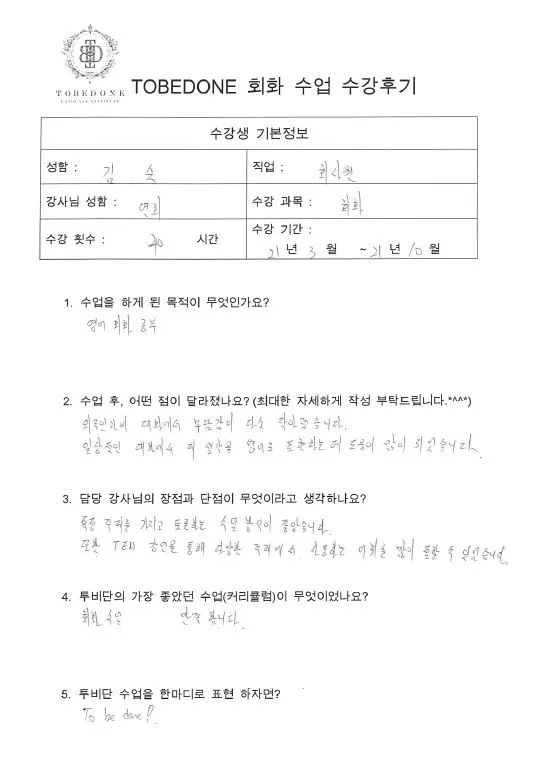 TOBEDONE
LANGUAGE INSTITUTE
TOBEDONE 회화 수업 수강후기
수강생 기본정보
성함 : 김 숙
직업 : 회사원
강사님 성함 : 연희
수강 과목 : 회화
수강 횟수 : 40 시간
수강 기간 :
21 년 3 월 ~ 21 년 10 월
1. 수업을 하게 된 목적이 무엇인가요?
영어 회화 공부
2. 수업 후, 어떤 점이 달라졌나요? (최대한 자세하게 작성 부탁드립니다.*^^*)
외국인과의 대화에서 부담감이 다소 작아졌습니다.
일상적인 대화에서 제 생각을 영어로 표현하는데 도움이 많이 되었습니다.
3. 담당 강사님의 장점과 단점이 무엇이라고 생각하나요?
특정 주제를 가지고 토론하는 수업 방식이 좋았습니다.
또한 TED 강연을 통해 다양한 주제에서 사용하는 어휘를 많이 접할 수 있었습니다.
4. 투비단의 가장 좋았던 수업(커리큘럼)이 무엇이었나요?
회화 수업 만족 합니다.
5. 투비단 수업을 한마디로 표현 하자면?
To be done!